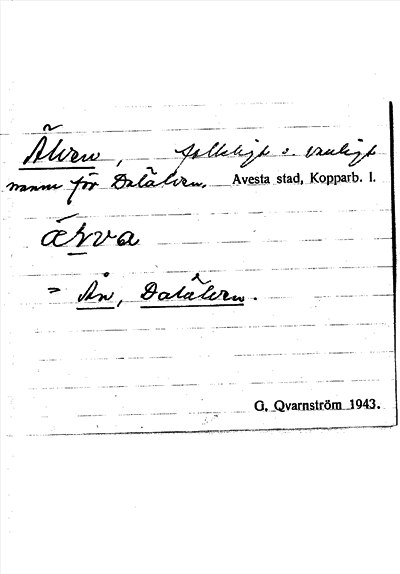 Älven, folkligt o. vanligt
namn för Dalälven. Avesta stad, Kopparb. l.
ä̀lva
= Ån, Dalälven.
G. Qvarnström 1943.